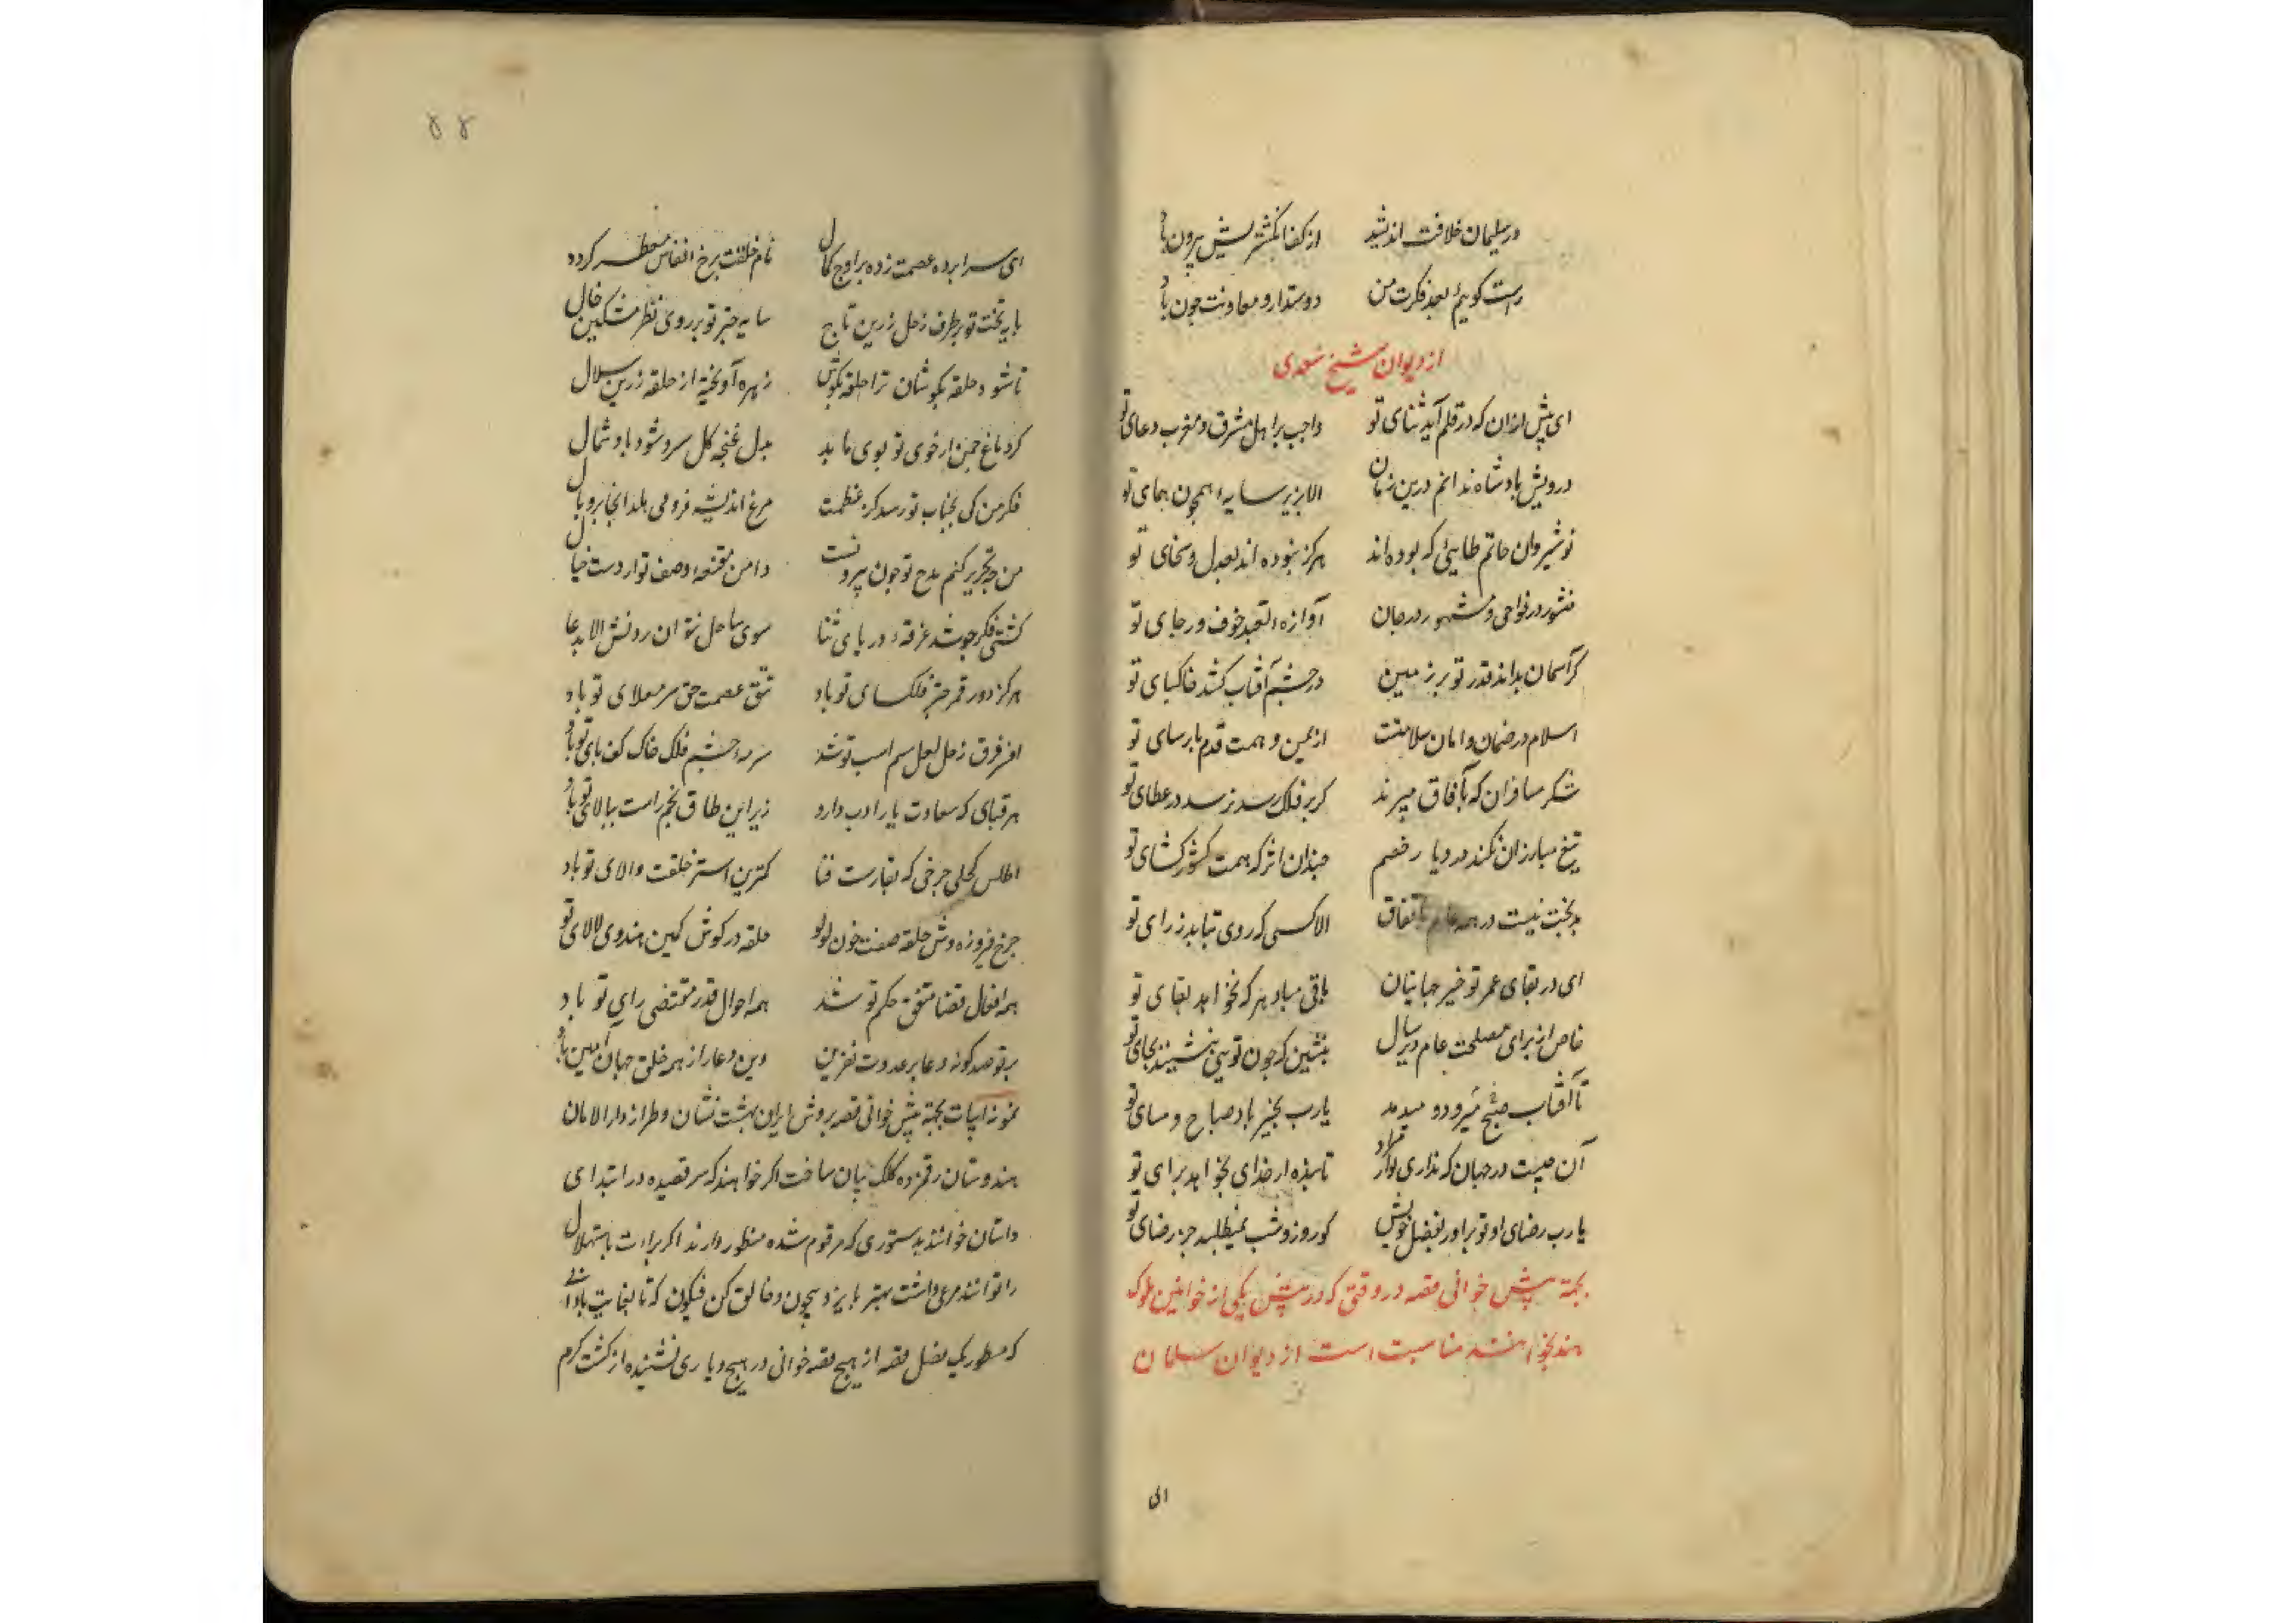 در سلیمان خلافت اندیشد از کف انگشتریش بیرون باد
راست گویم بعد فکرت من دوستدار و معاونت چون باد
از دیوان شیخ سعدی
ای پیش ازان که در قلم آید ثنای تو واجب بر اهل مشرق و مغرب دعای تو
درویش بادشاه ندانم درین زمان الا بزیر سایه همچون همای تو
نوشیروان حاتم طایی که بوده اند هرکز نبوده اند بعدل و سخای تو
منشور در نواحی و مشهور در جهان آوازه تعبد خوف و رجای تو
کر آسمان بداند قدر تو بر زمین در چشم آفتاب کشد خاکپای تو
اسلام در ضمان و امان سلامتت از یمن و همت قدم پارسای تو
شکر مسافران که بآفاق میبرند کر بر فلک رسد نرسد در عطای تو
تیغ مبارزان نکند در دیار خصم چندان اثر که همت کشورکشای تو
بدبخت نیست در همه عالم باتفاق الا کسی که روی بتابد ز رای تو
ای در بقای عمر تو خیر جهانیان باقی مباد هر که نخواهد بقای تو
خاص از برای مصلحت عام دیر سال بنشین که چون تویی ننشیند بجای تو
تا آفتاب صبح میرود و میدمد یارب بخیر باد صباح و مسای تو
آن چیست در جهان که نداری تو آن مراد تا بنده از خدای بخواهد برای تو
یارب رضای او تو برآور بفضل خویش کو روز و شب نمیطلبد جز رضای تو
بجهة پیش خوانی قصه در وقتی که در پیش یکی از خواقین ملوک
هند بخوانند مناسبت است از دیوان سلمان
الی
۵۵
ای سرابرده عصمت زده بر اوج کمال نام خلقت برخ انفاس معطر کرده
بایه تخت تو بر طرف زحل زرین تاج سایه چتر تو بر روی نظر مشکین خال
تا شود حلقه بکوشان ترا حلقه بکوش زهره آویخته از حلقه زرین سلال
کرد باغ چمن ار خوی تو بوی یابد بدل غنچه کل سر و شود باد شمال
فکر من کی بجناب تو رسد کز عظمت مرغ اندیشه فرو می هلد آنجا پر و بال
من چه تحریر کنم مدح تو چون بیرونست دامن مقنعه وصف تو از دست خیال
کشتی فکر چو شد غرقه دریای ثنا سوی ساحل نتوان بردنش الا بدعا
مرکز دور قمر چتر فلکسای تو باد تتق عصمت حق سر معلای تو باد
افسر فرق زحل لعل سم اسب تو شد سرمه چشم فلک خاک کف بای تو باد
هر قبای که سعادت یارا دب دارد زیر این طاق نهم راست ببالای تو باد
اطلس کحلی چرخی که بقارست قبا کمترین استر خلعت والای تو باد
چرخ فیروزه وش حلقه صفت چون لولو حلقه در کوش کمین هندوی لالای تو
همه افعال قضا متفق حکم تو شد همه احوال قدر مقتضی رای تو باد
بر تو صد کونه دعا بر عدوت نفرین وین دعا را از همه خلق جهان آمین باد
نمونه ابیات بجهة پیش خوانی قصه بروش ایران بهشت نشان و طراز دار الامان
هندوستان رقم زده کلک بیان ساخت اکر خواهند که سر قصیده در ابتدای
داستان خوانند بدستوری که مرقوم شده منظور دارند اکر براعت باستهلال
را توانند مرعی داشت بهتر بایزد بیچون و خالق کن فیکون که تا بغایت
که مسطور یک فصل قصه از هیچ قصه خوانی در هیچ دیاری نشنیده از کشت کرم